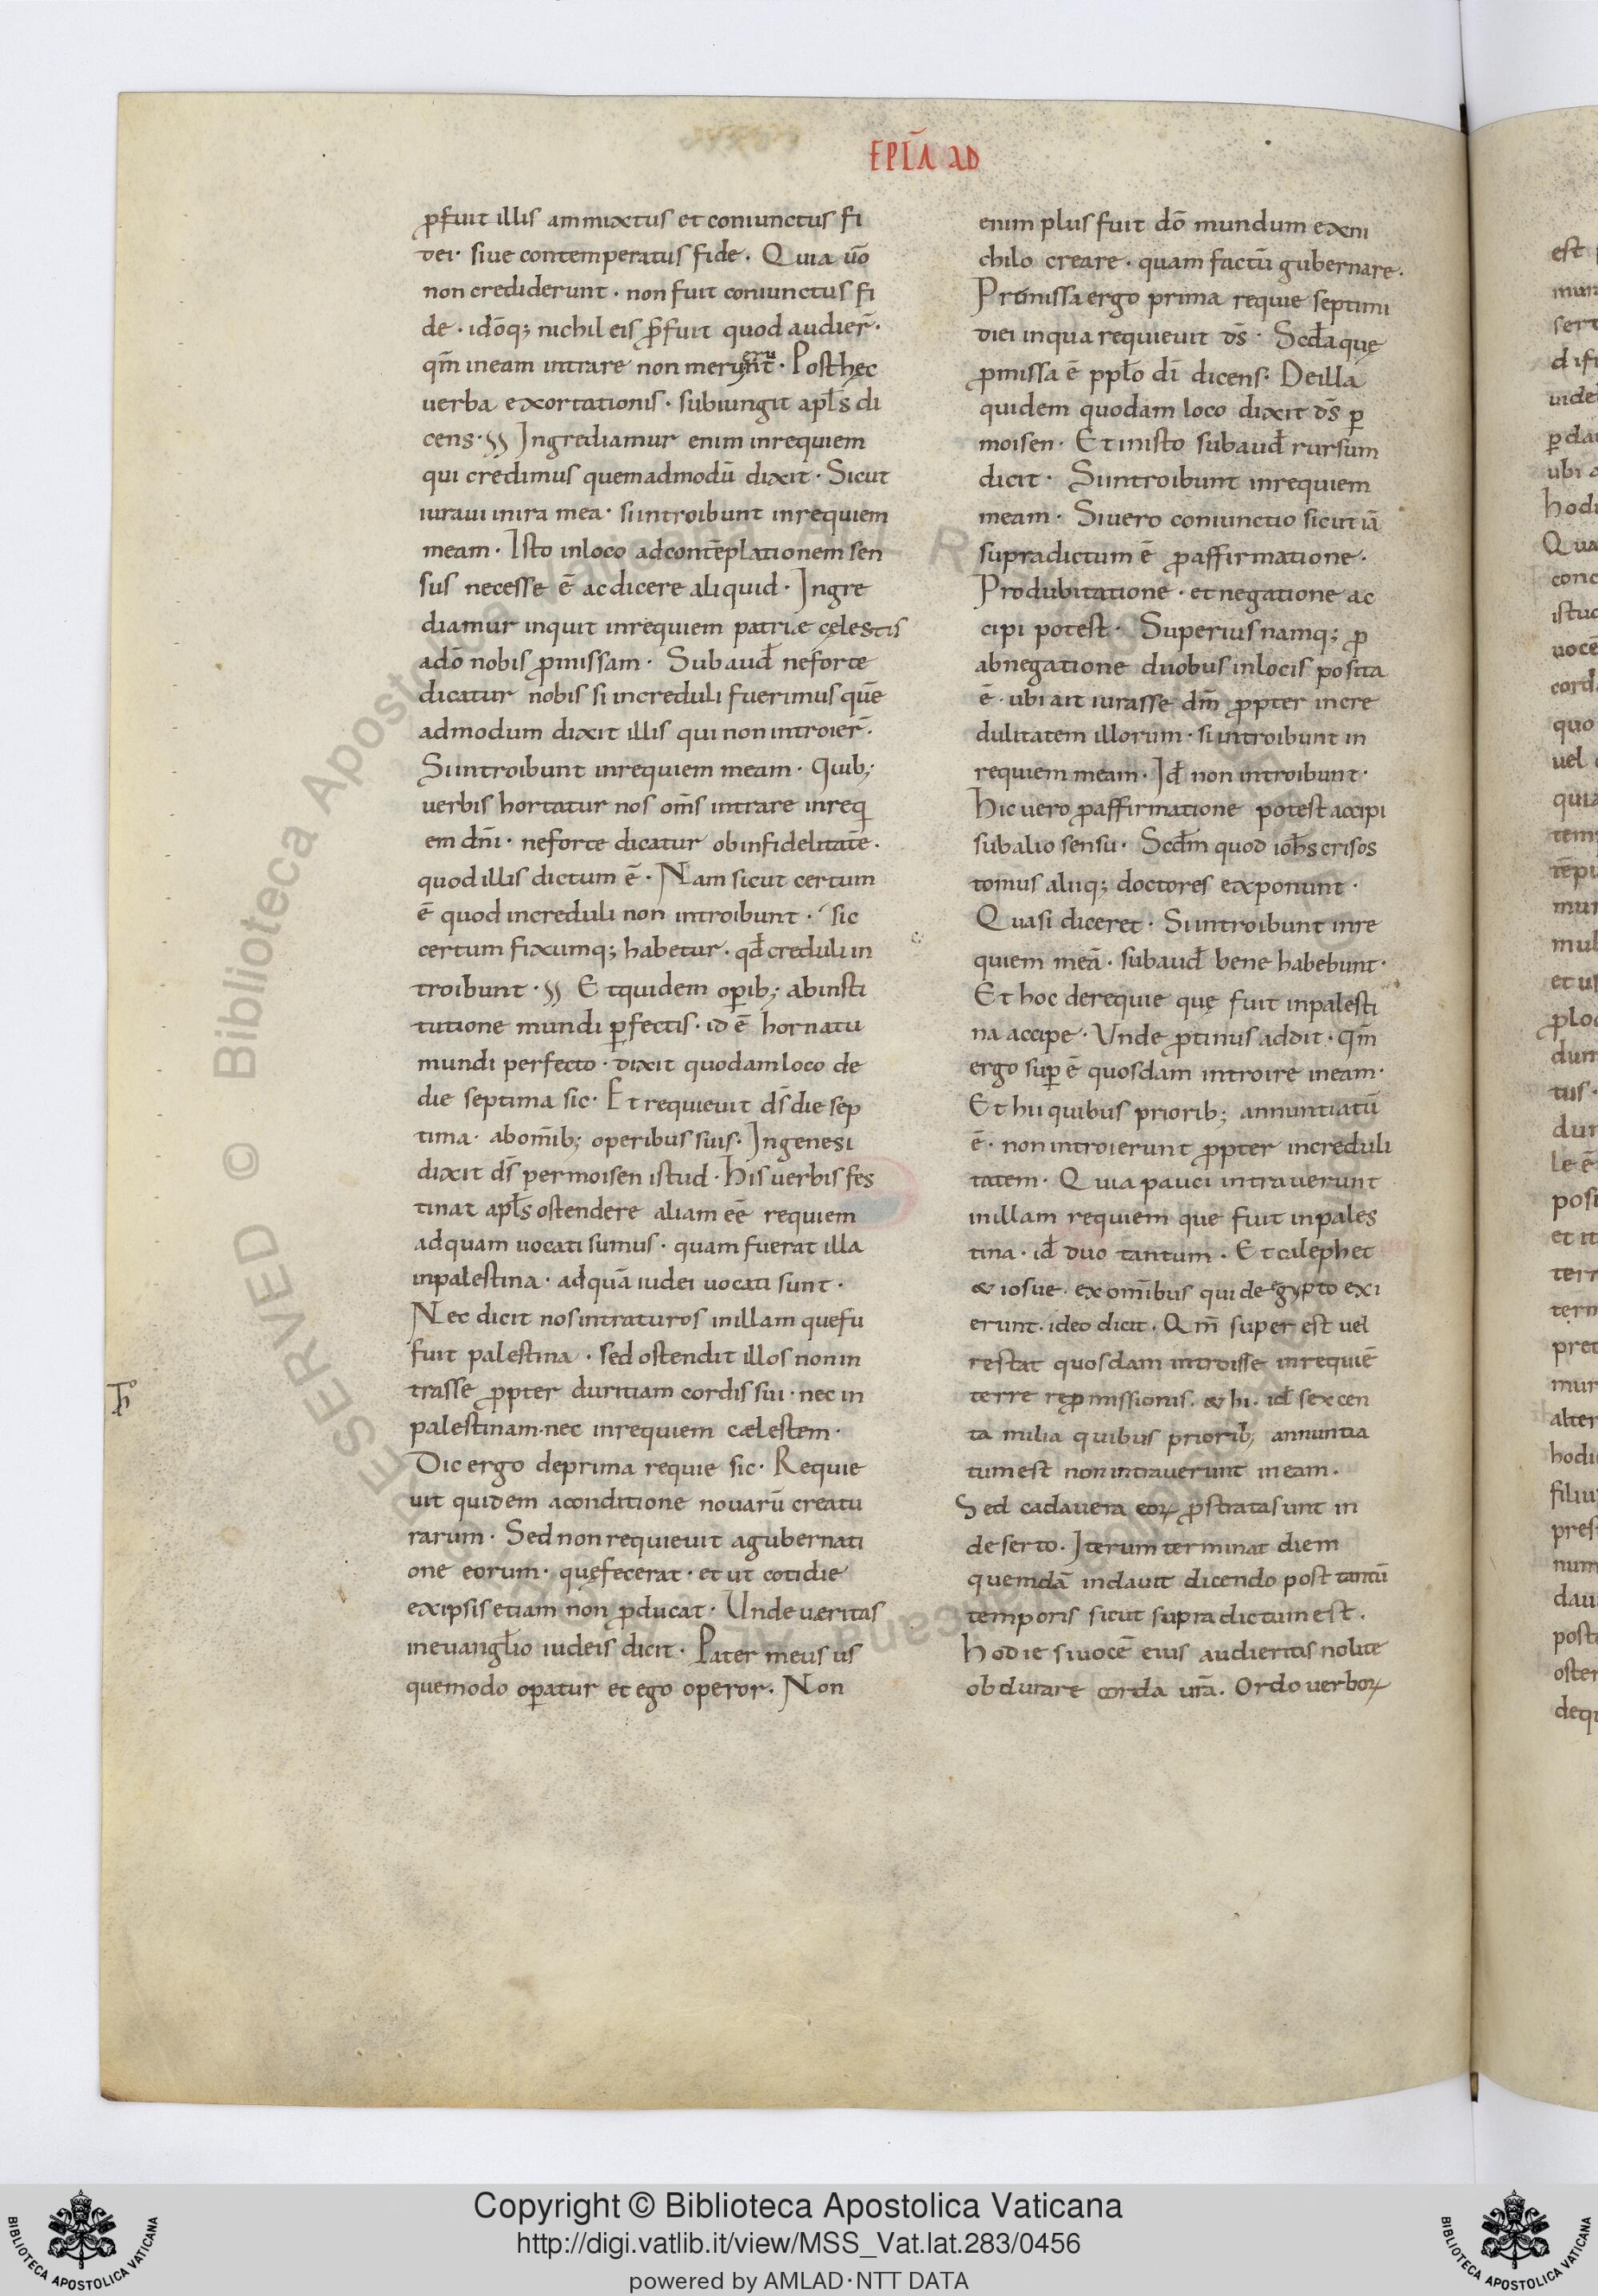 EPLA AD
ꝓfuit illis ammixtus et coniunctus fi
dei · siue contemperatus fide · Quia uō
non crediderunt · non fuit coniunctus fi
de · idōq; nichil eis p̄fuit quod audier̄ ·
qm̄ ineam intrare non meruerunt · Posthęc
uerba exortationis · subiungit apl̄s di
cens · Ingrediamur enim inrequiem
qui credimus quemadmodū dixit · Sicut
iuraui inira mea · siintroibunt inrequiem
meam · Isto inloco adcontēplationem sen
sus necesse ē ac dicere aliquid · Ingre
diamur inquit inrequiem patriæ cęlestis
adō nobis ꝓmissam · Subaud̄ neforte
dicatur nobis si increduli fuerimus quē
admodum dixit illis qui non introier̄ ·
Siintroibunt inrequiem meam · Quib;
uerbis hortatur nos om̄s intrare inreq
em dn̄i · neforte dicatur obinfidelitatē ·
quod illis dictum ē · Nam sicut certum
ē quod increduli non introibunt · sic
certum fixumq; habetur · qd̄ creduli in
troibunt · Et quidem oꝑib; abinsti
tutione mundi ꝑfectis · id ē hornatu
mundi perfecto · dixit quodam loco de
die septima sic · Et requieuit ds̄ die sep
tima · abom̄ib; operibus suis · Ingenesi
dixit ds̄ per moisen istud · His uerbis fes
tinat apl̄s ostendere aliam eē requiem
adquam uocati sumus · quam fuerat illa
inpalestina · adquā iudei uocati sunt ·
Nec dicit nos intraturos inillam quefu
fuit palestina · sed ostendit illos non in
trasse ꝓpter duritiam cordis sui · nec in
palestinam · nec inrequiem cælestem ·
Dic ergo deprima requie sic · Requie
uit quidem aconditione nouarū creatu
rarum · Sed non requieuit agubernati
one eorum · quęfecerat · et ut cotidie
exipsis etiam non ꝓducat · Unde uæritas
ineuangl̄io iudeis dicit · Pater meus us
quemodo oꝑatur et ego operor · Non
enim plus fuit dō mundum exni
chilo creare · quam factū gubernare ·
Promissa ergo prima requie septimi
diei inqua requieuit ds̄ · Scd̄a quę
ꝓmissa ē ppl̄o dī dicens · Deilla
quidem quodam loco dixit ds̄ ꝑ
moisen · Et inisto subaud̄ rursum
dicit · Siintroibunt inrequiem
meam · Siuero coniunctio sicut iā
supradictum ē ꝓaffirmatione ·
Produbitatione · et negatione ac
cipi potest · Superius namq; ꝓ
abnegatione duobus inlocis posita
ē · ubi ait iurasse dm̄ ꝓpter incre
dulitatem illorum · si introibunt in
requiem meam · Id̄ non introibunt ·
Hic uero ꝓaffirmatione potest accipi
subalio sensu · Scd̄m quod ioh̄s crisos
tomus aliiq; doctores exponunt ·
Quasi diceret · Siintroibunt inre
quiem meā · subaud̄ bene habebunt ·
Et hoc derequie quę fuit inpalesti
na accipe · Unde ꝓtinus addit · qm̄
ergo suꝑ ē quosdam introire ineam ·
Et hii quibus priorib; annuntiatū
ē · non introierunt ꝓpter increduli
tatem · Quia pauci intrauerunt
inillam requiem que fuit inpales
tina · id̄ duo tantum · Et caleph et
& iosue · ex om̄ibus qui de egypto exi
erunt · ideo dicit · Qm̄ super est uel
restat quosdam introisse inrequiē
terre reꝓmissionis · & hi · id̄ sexcen
ta milia quibus priorib; annuntia
tum est non intrauerunt ineam ·
Sed cadauera eoꝝ ꝓstrata sunt in
deserto · Iterum terminat diem
quemdā indauit dicendo post tantū
temporis sicut supra dictum est ·
Hodie siuocē eius audieritis nolite
obdurare corda ur̄a · Ordo uerboꝝ
Copyright © Biblioteca Apostolica Vaticana
http://digi.vatlib.it/view/MSS_Vat.lat.283/0456
powered by AMLAD·NTT DATA
BIBLIOTECA APOSTOLICA VATICANA
BIBLIOTECA APOSTOLICA VATICANA